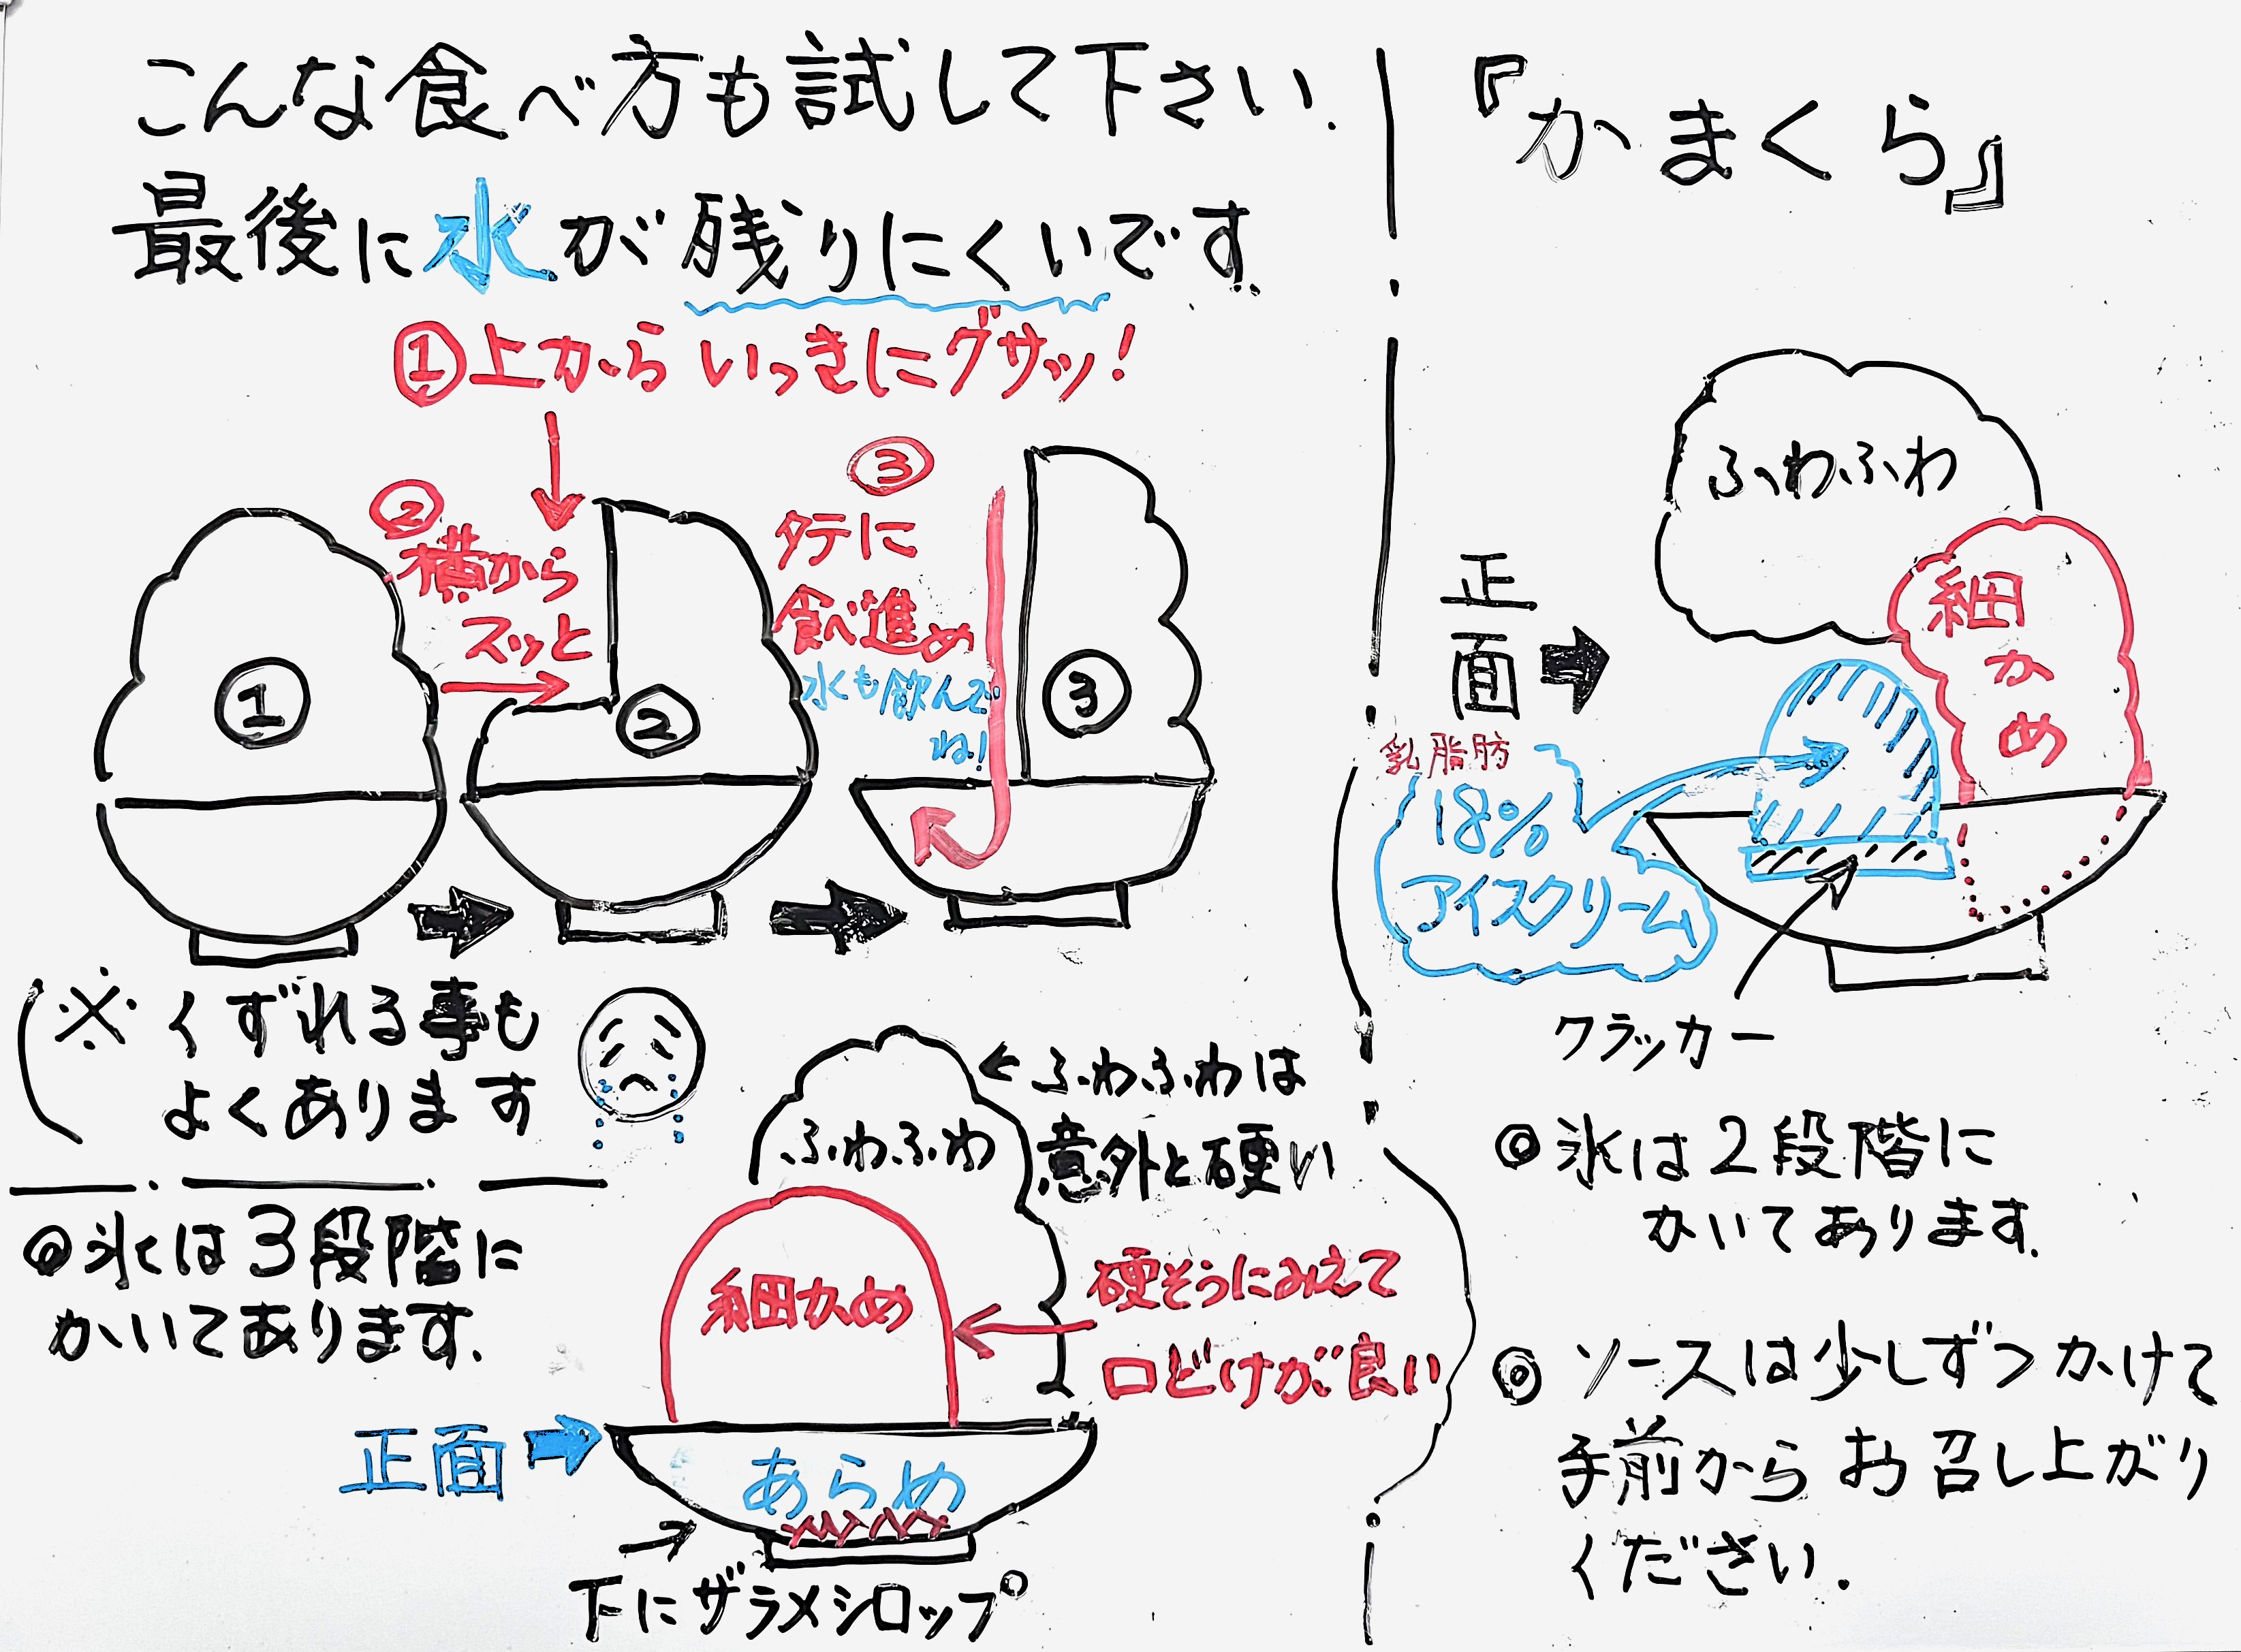 こんな食べ方も試して下さい.
最後に水が残りにくいです.
①上からいっきにグサッ!
②
横から
スッと
③
タテに
食べ進め
水も飲んで
ね!
①
②
③
(※くずれる事も
よくあります
◎氷は3段階に
かいてあります.
ふわふわ
←ふわふわは
意外と硬い
細かめ
硬そうにみえて
口どけが良い
正面
あらめ
下にザラメシロップ
『かまくら』
ふわふわ
細
か
め
正
面
乳脂肪
18%
アイスクリーム
クラッカー
◎氷は2段階に
かいてあります.
◎ソースは少しずつかけて
手前からお召し上がり
ください.